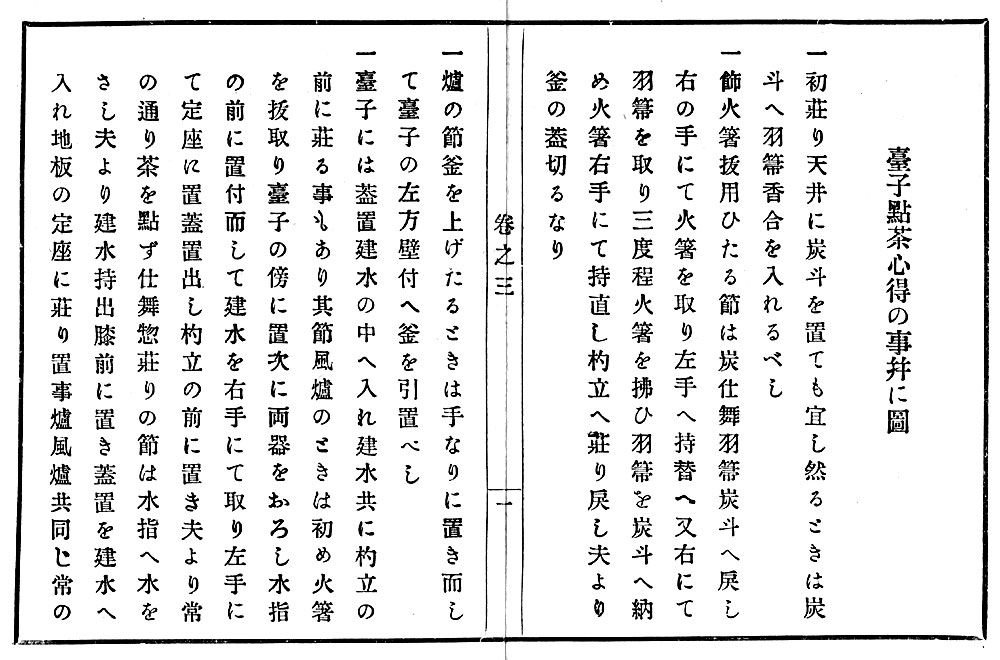 臺子點茶心得の事幷に圖
一初莊り天井に炭斗を置ても宜し然るときは炭
斗へ羽箒香合を入れるべし
一飾火箸拔用ひたる節は炭仕舞羽箒炭斗へ戾し
右の手にて火箸を取り左手へ持替へ又右にて
羽箒を取り三度程火箸を拂ひ羽箒を炭斗へ納
め火箸右手にて持直し杓立へ莊り戾し夫より
釜の蓋切るなり
卷之三
一
一爐の節釜を上げたるときは手なりに置き而し
て臺子の左方壁付へ釜を引置べし
一臺子には蓋置建水の中へ入れ建水共に杓立の
前に莊る事もあり其節風爐のときは初め火箸
を拔取り臺子の傍に置次に両器をおろし水指
の前に置付而して建水を右手にて取り左手に
て定座に置蓋置出し杓立の前に置き夫より常
の通り茶を點ず仕舞惣莊りの節は水指へ水を
さし夫より建水持出膝前に置き蓋置を建水へ
入れ地板の定座に莊り置事爐風爐共同じ常の